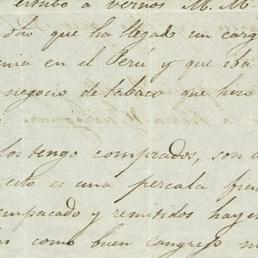 estubo a vernos M. M.
dho que ha llegado un carg
nia en el Perú y que iba
negocio de tabaco que hizo
los tengo comprados, son
esto es una percala fin
empacado y remitidos hayen
como buen cangrejo